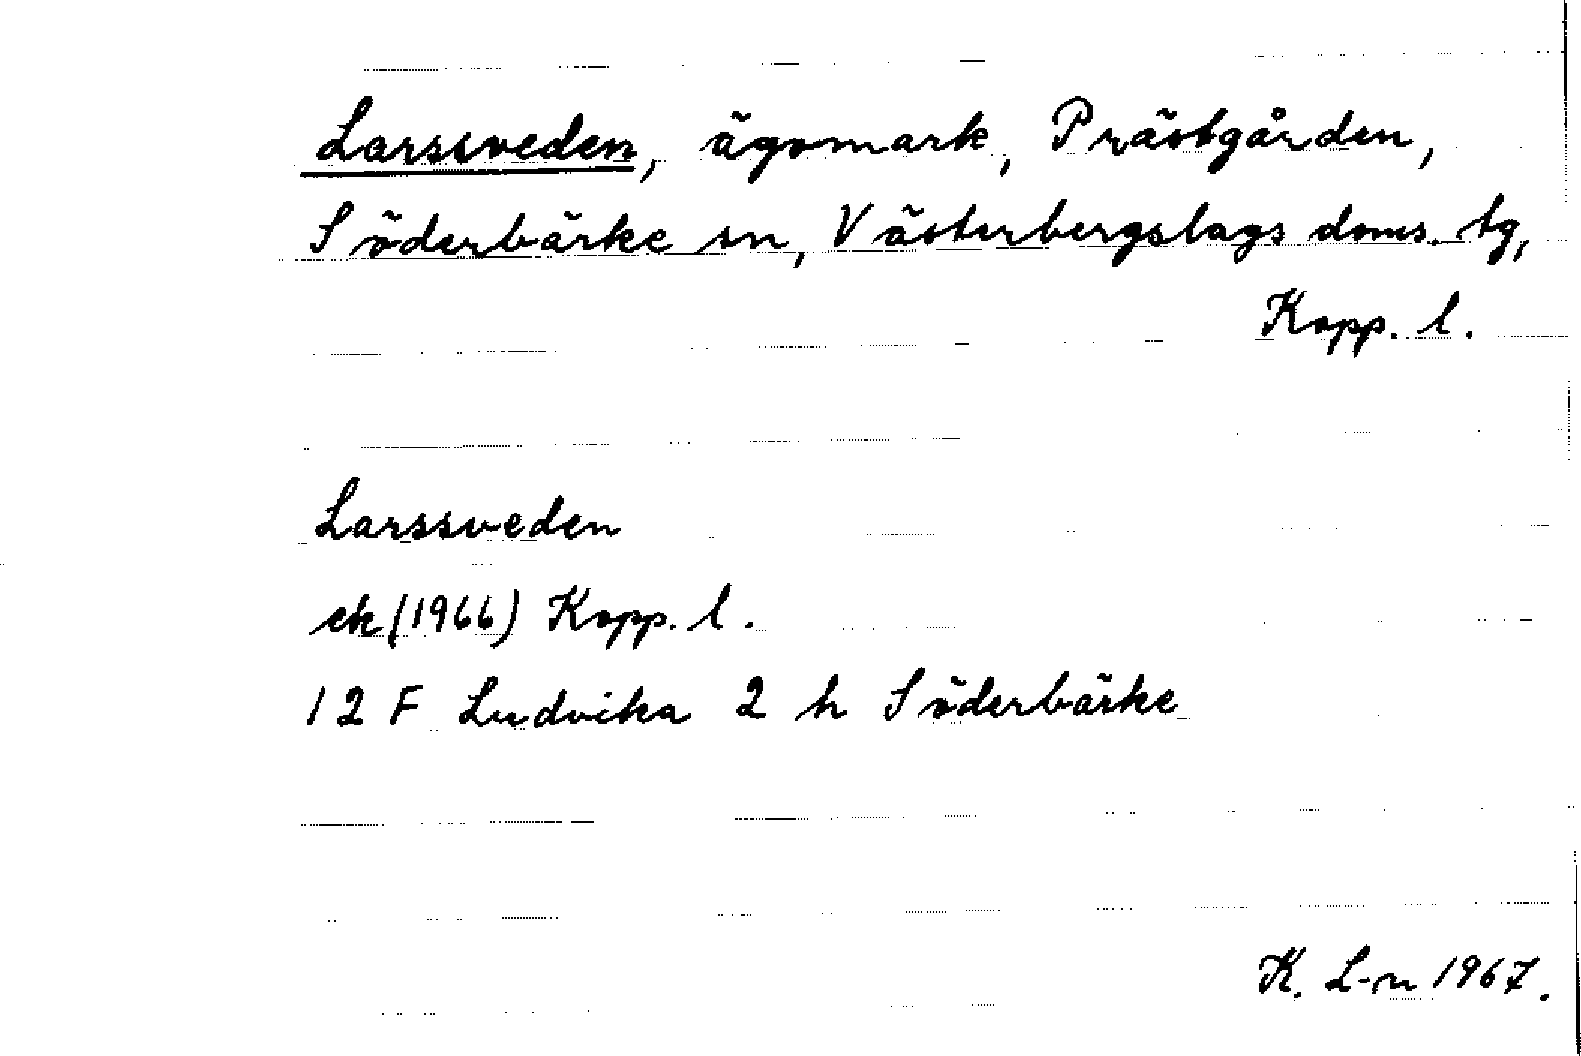 Larssveden, ägomark, Prästgården,
Söderbärke sn, Västerbergslags doms. tg,
Kopp. l.
Larssveden
ek (1966) Kopp. l.
12 F Ludvika 2 h Söderbärke
K. L-n 1967.